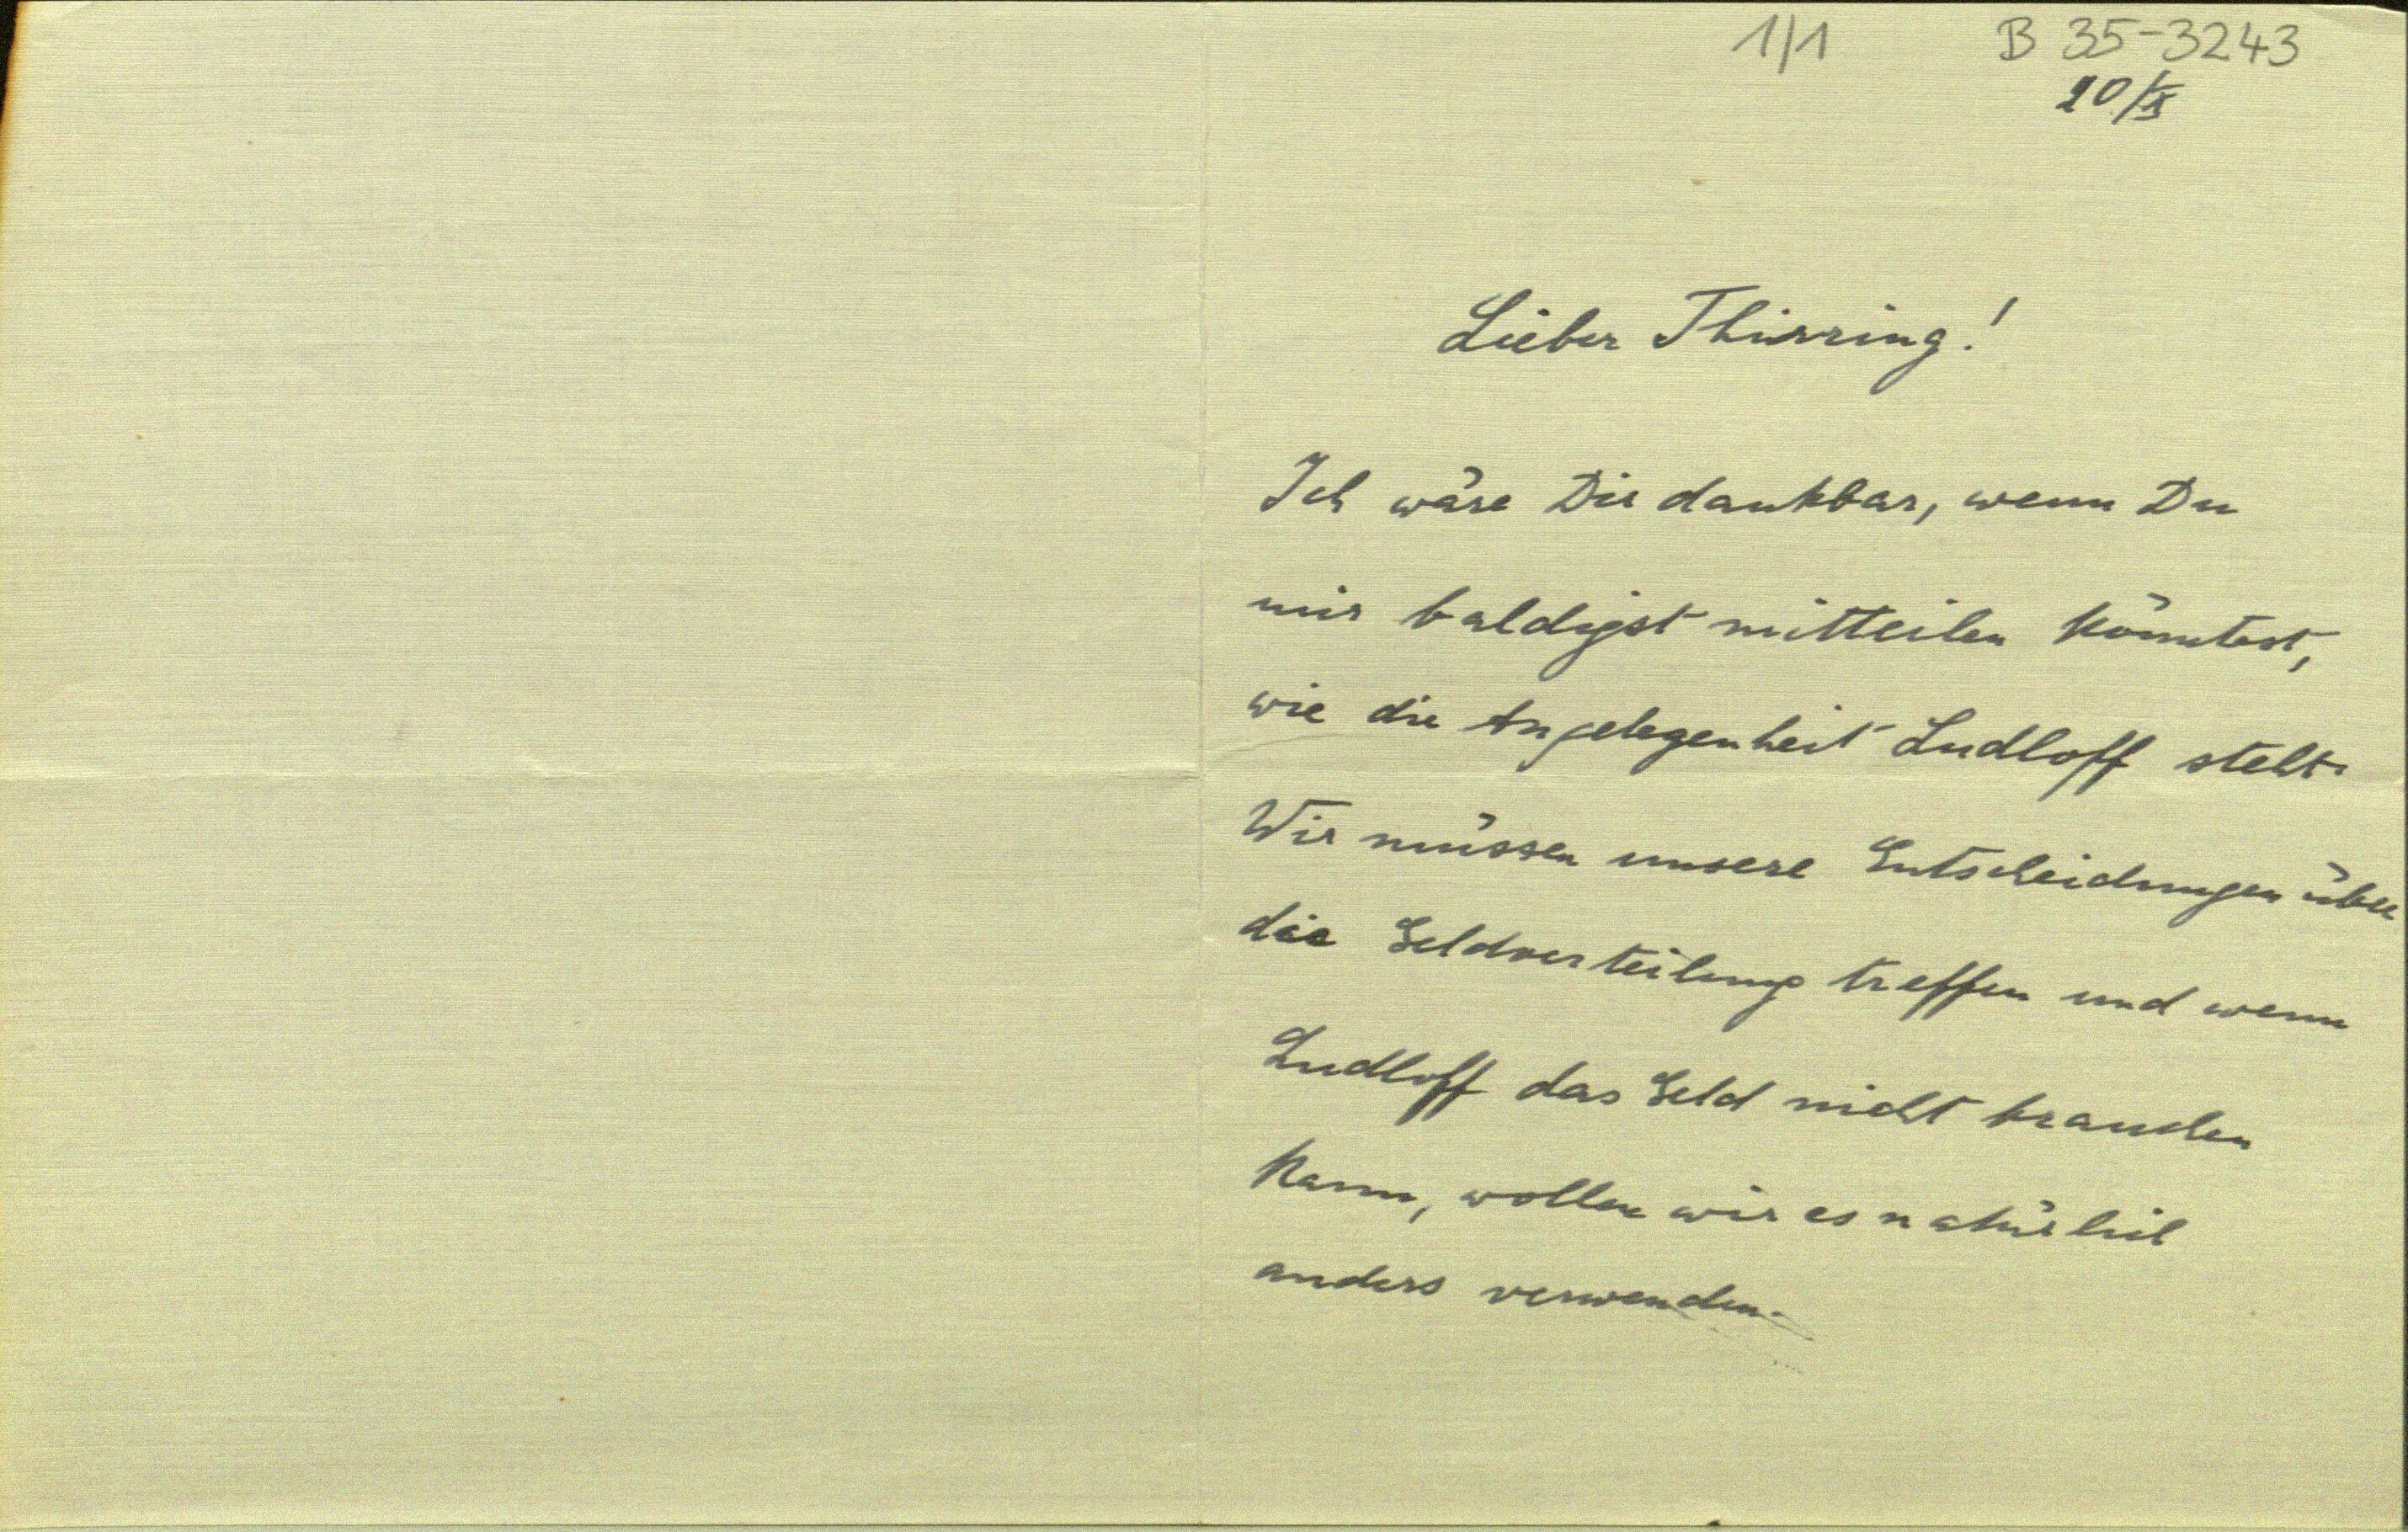 1/1 B 35-3243
Lieber Thirring!
Ich wäre Dir dankbar, wenn Du
mir baldigst mitteilen könntest,
wie die Angelegenheit Ludloff steht.
Wir müssen unsere Entscheidungen über
die Geldverteilung treffen und wenn
Ludloff das Geld nicht brauchen
kann, wollen wir es natürlich
anders verwenden.